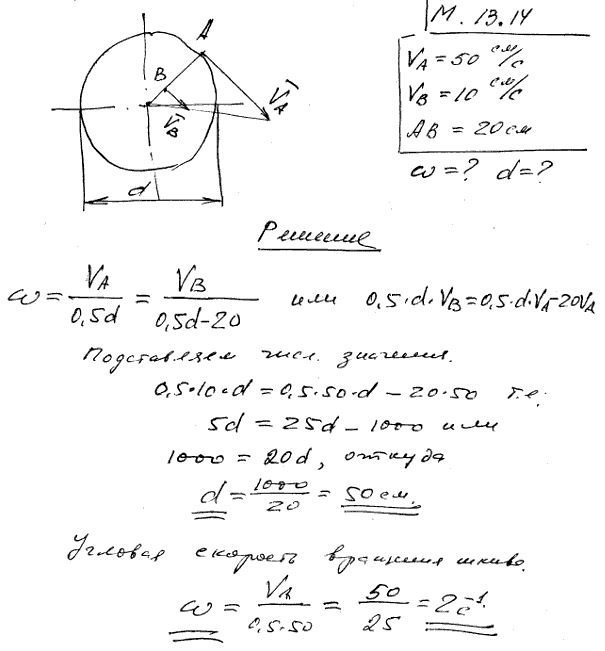 М. 13.14
A
B
V_A
V_B
d
V_A = 50 см/с
V_B = 10 см/с
AB = 20 см
ω = ? d = ?
Решение
ω = V_A/0,5d = V_B/(0,5d-20) или 0,5·d·V_B = 0,5·d·V_A - 20V_A
Подставляем числ. значения.
0,5·10·d = 0,5·50·d - 20·50 т.е.
5d = 25d - 1000 или
1000 = 20d, откуда
d = 1000/20 = 50 см.
Угловая скорость вращения шкива.
ω = V_A/0,5·50 = 50/25 = 2 с⁻¹.